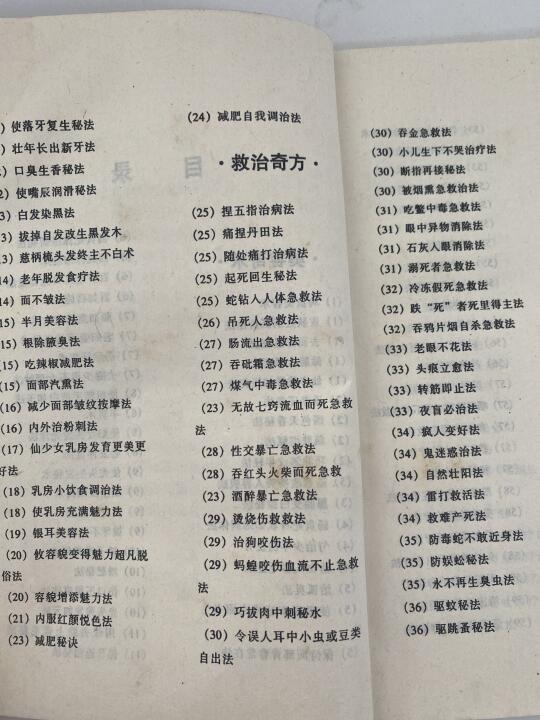 ) 使落牙复生秘法
) 壮年长出新牙法
) 口臭生香秘法
2) 使嘴唇润滑秘法
3) 白发染黑法
3) 拔掉自发改生黑发木
3) 慈柄梳头发终主不白术
14) 老年脱发食疗法
14) 面不皱法
15) 半月美容法
15) 根除腋臭法
15) 吃辣椒减肥法
(15) 面部汽熏法
(16) 减少面部皱纹按摩法
(16) 内外治粉刺法
(17) 仙少女乳房发育更美更
好法
(18) 乳房小饮食调治法
(18) 使乳房充满魅力法
(19) 银耳美容法
(20) 攸容貌变得魅力超凡脱
俗法
(20) 容貌增添魅力法
(21) 内服红颜悦色法
(23) 减肥秘诀
(24) 减肥自我调治法
·救治奇方·
(25) 捏五指治病法
(25) 痛捏丹田法
(25) 随处痛打治病法
(25) 起死回生秘法
(25) 蛇钻人人体急救法
(26) 吊死人急救法
(27) 肠流出急救法
(27) 吞砒霜急救法
(27) 煤气中毒急救法
(23) 无故七窍流血而死急救
法
(28) 性交暴亡急救法
(28) 吞红头火柴而死急救
(23) 酒醉暴亡急救法
(29) 烫烧伤救救法
(29) 治狗咬伤法
(29) 蚂蝗咬伤血流不止急救
法
(29) 巧拔肉中刺秘水
(30) 令误人耳中小虫或豆类
自出法
(30) 吞金急救法
(30) 小儿生下不哭治疗法
(30) 断指再接秘法
(30) 被烟熏急救治法
(31) 吃蟹中毒急救法
(31) 眼中异物消除法
(31) 石灰入眼消除法
(31) 溺死者急救法
(32) 冷冻假死急救法
(32) 跌“死”者死里得主法
(32) 吞鸦片烟自杀急救法
(33) 老眼不花法
(33) 头痕立愈法
(33) 转筋即止法
(33) 夜盲必治法
(34) 疯人变好法
(34) 鬼迷惑治法
(34) 自然壮阳法
(34) 雷打救活法
(34) 救难产死法
(35) 防毒蛇不敢近身法
(35) 防蜈蚣秘法
(35) 永不再生臭虫法
(36) 驱蚊秘法
(36) 驱跳蚤秘法